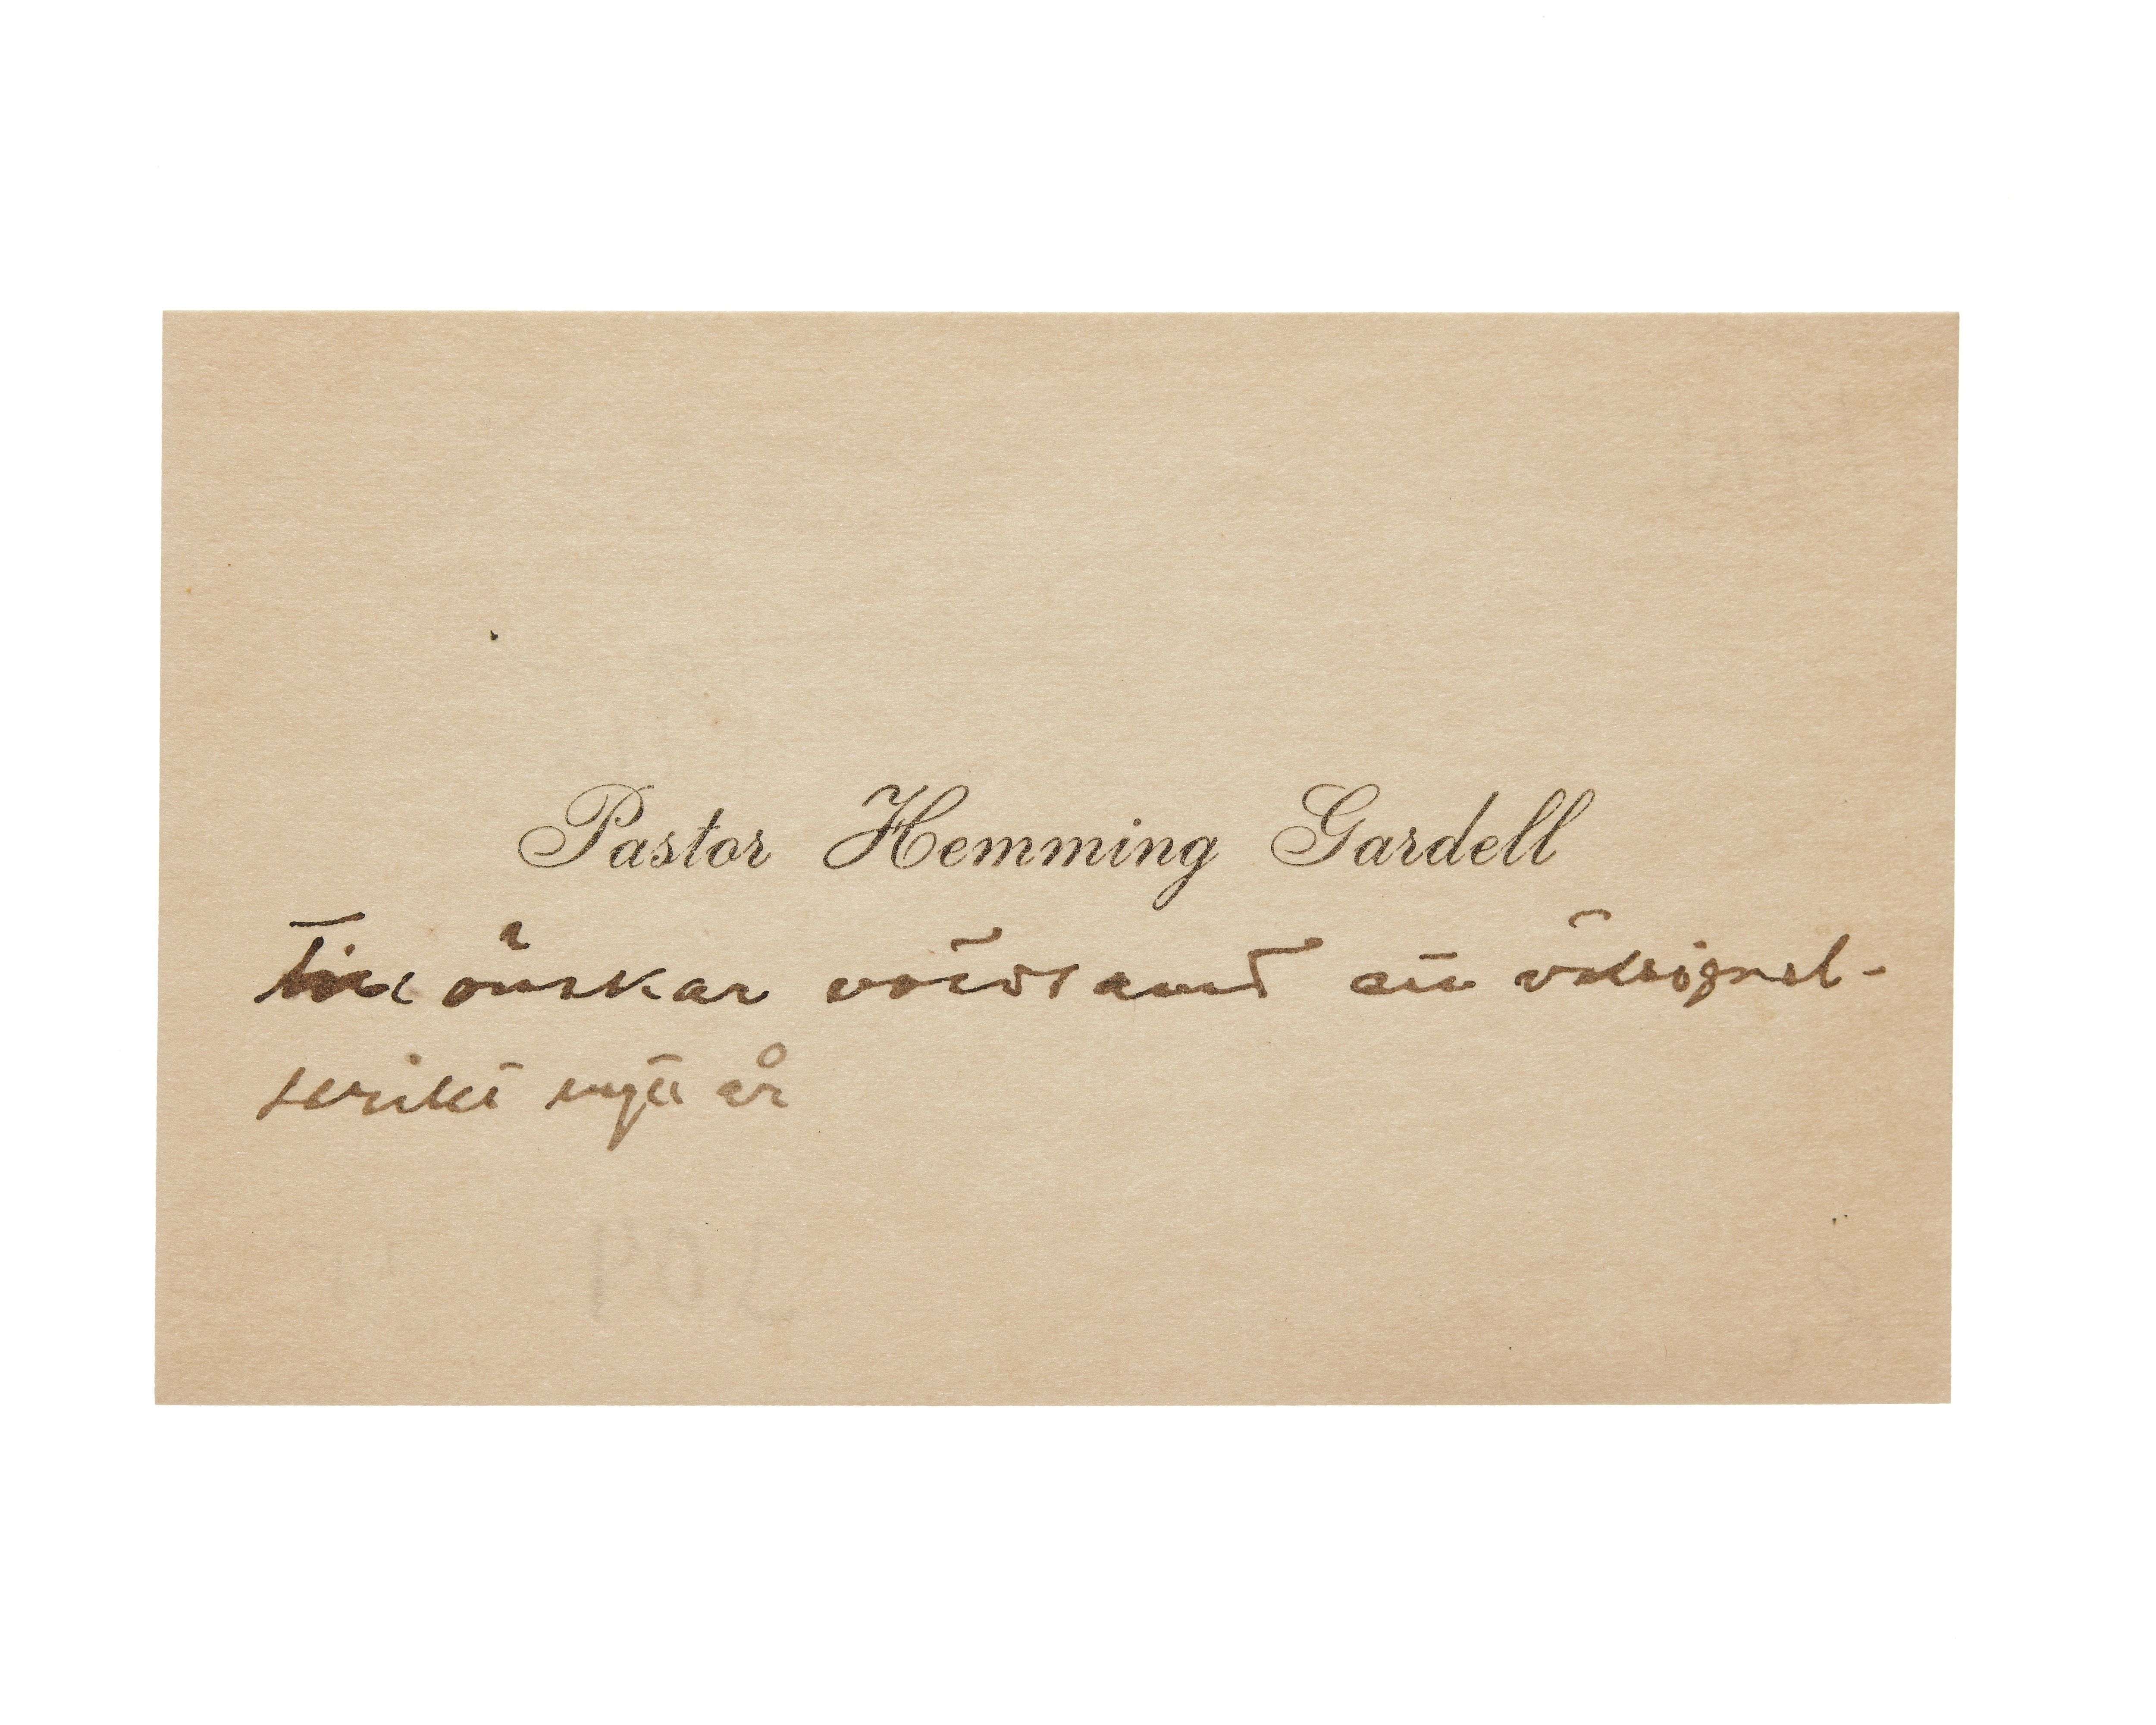 Pastor Hemming Gardell
önskar vördsamt ett välsignel-
serikt nytt år